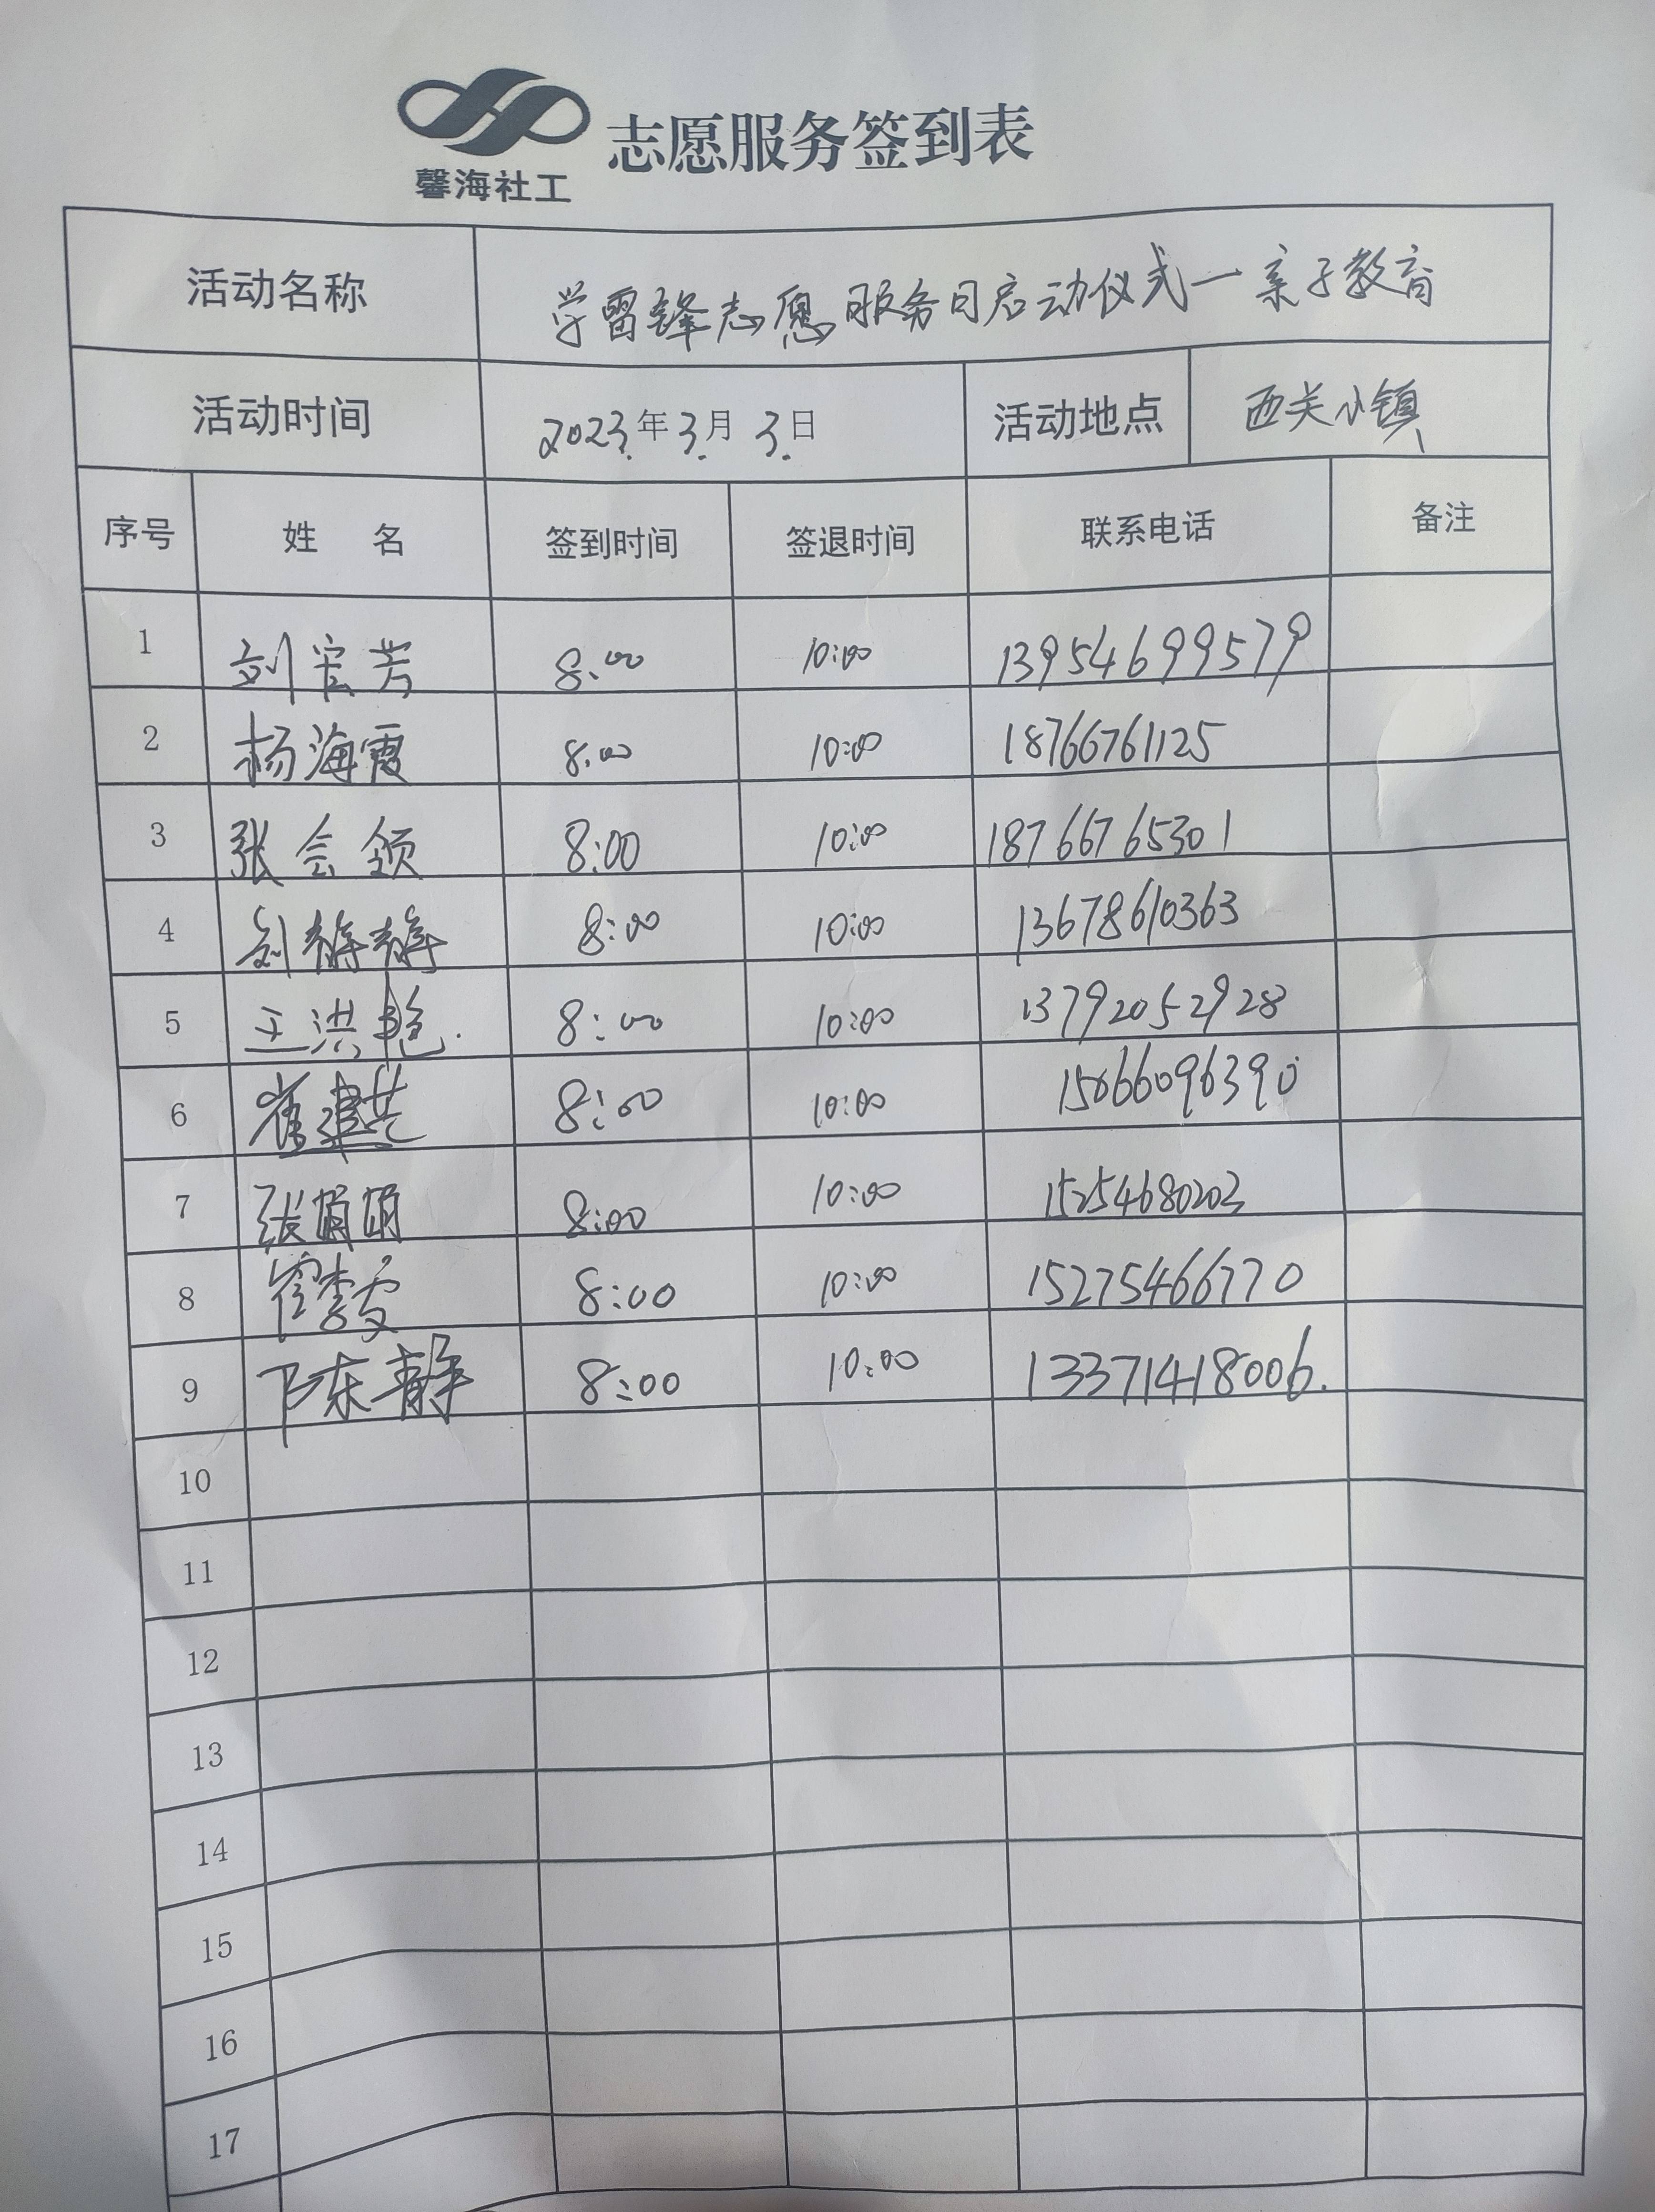 馨海社工
志愿服务签到表
活动名称 学雷锋志愿服务日启动仪式一亲子教育
活动时间 2023年3月3日 活动地点 西关小镇
序号 姓名 签到时间 签退时间 联系电话 备注
1 刘宏芳 8:00 10:00 13954699579
2 杨海霞 8:00 10:00 18766761125
3 张会颂 8:00 10:00 18766765301
4 刘静静 8:00 10:00 13678610363
5 王洪艳 8:00 10:00 13792052928
6 崔建芸 8:00 10:00 15066096390
7 张娟娟 8:00 10:00 15254680203
8 崔李雯 8:00 10:00 15275466770
9 陈东静 8:00 10:00 13371418006.
10
11
12
13
14
15
16
17